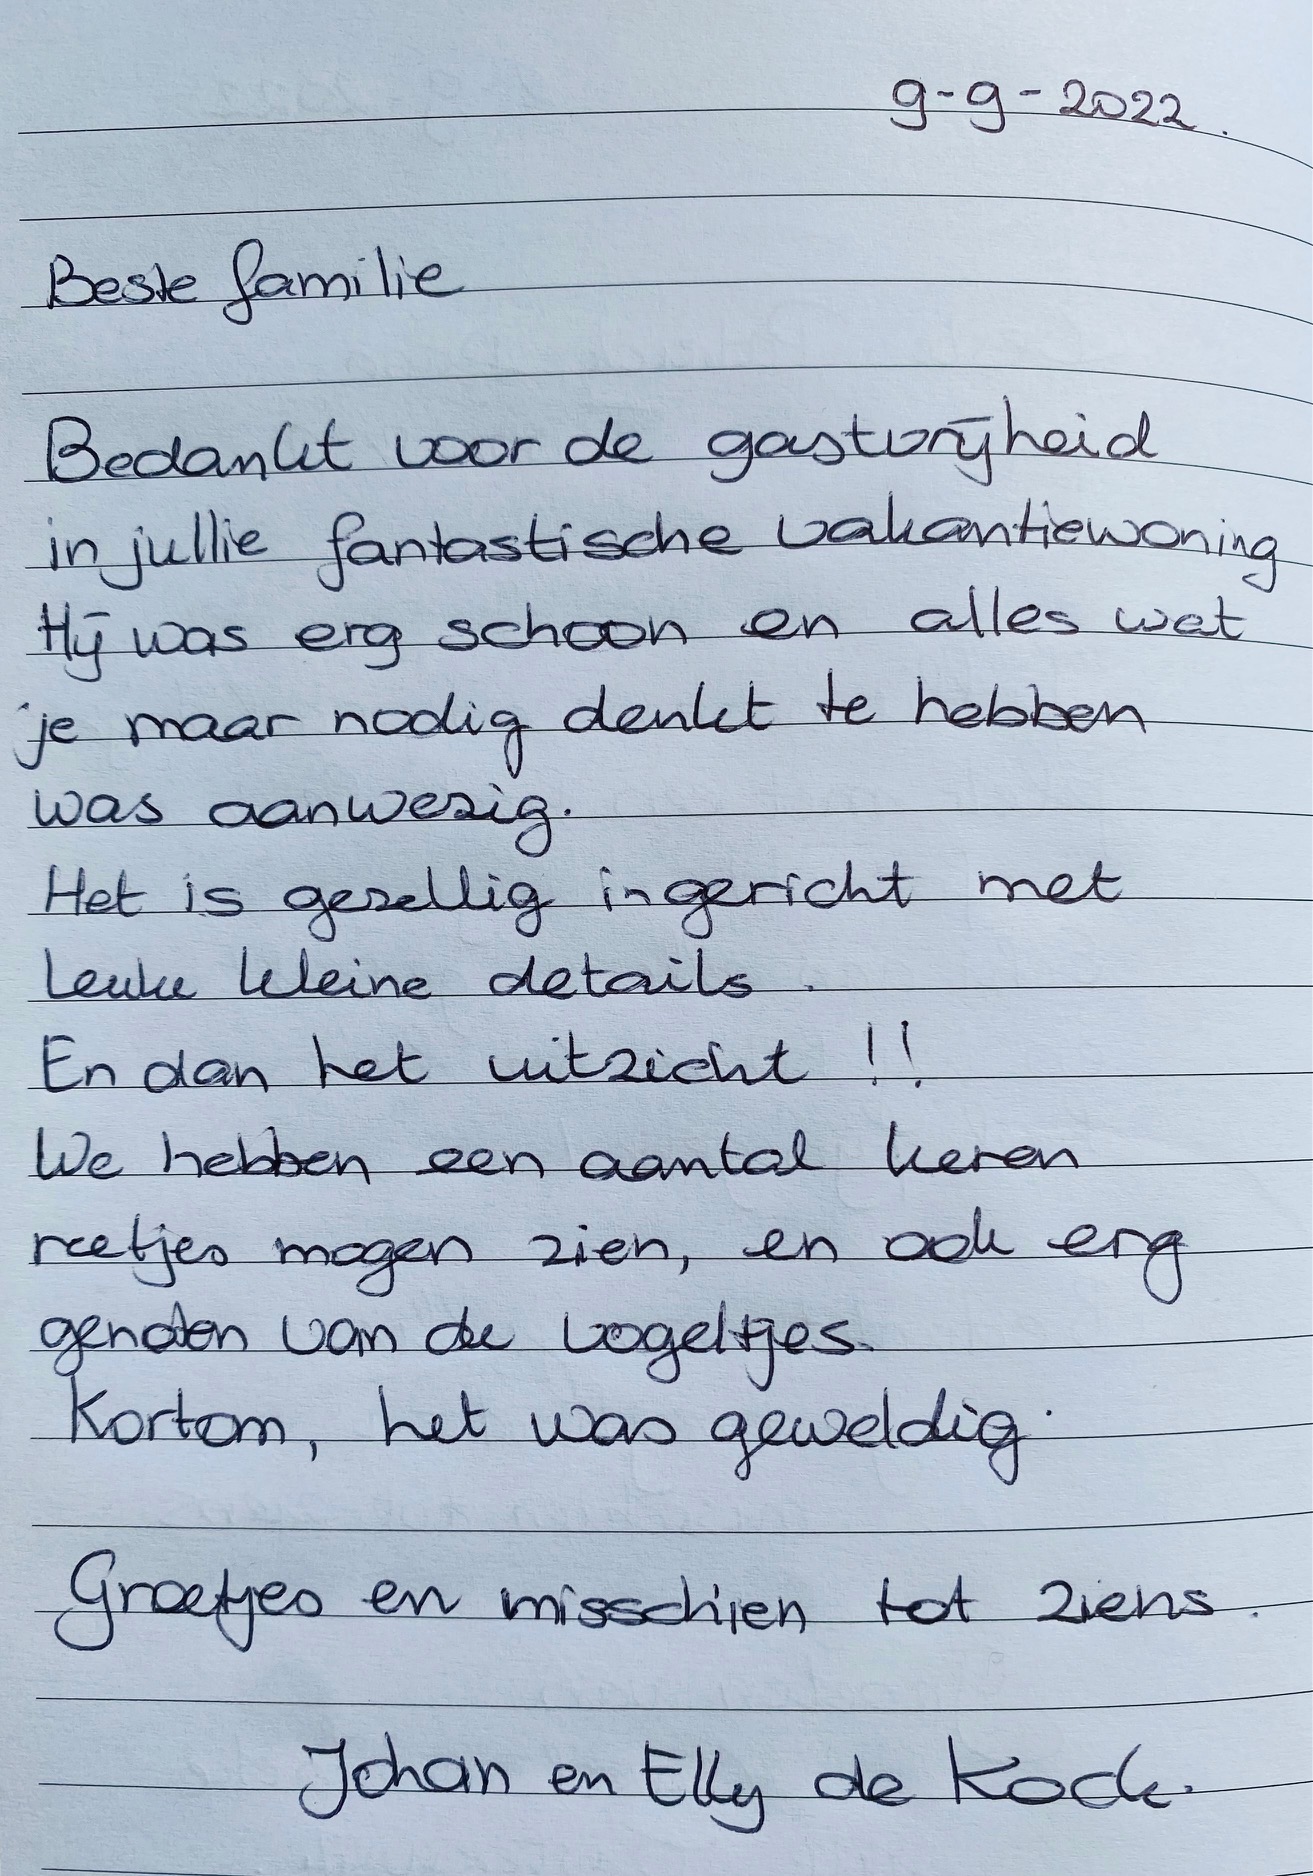 9-9-2022.
Beste familie
Bedankt voor de gastvrijheid
in jullie fantastische vakantiewoning
Hij was erg schoon en alles wat
je maar nodig denkt te hebben
was aanwezig.
Het is gezellig ingericht met
leuke kleine details.
En dan het uitzicht !!
We hebben een aantal keren
reetjes mogen zien, en ook erg
genoten van de vogeltjes.
Kortom, het was geweldig.
Groetjes en misschien tot ziens.
Johan en Elly de Kock.